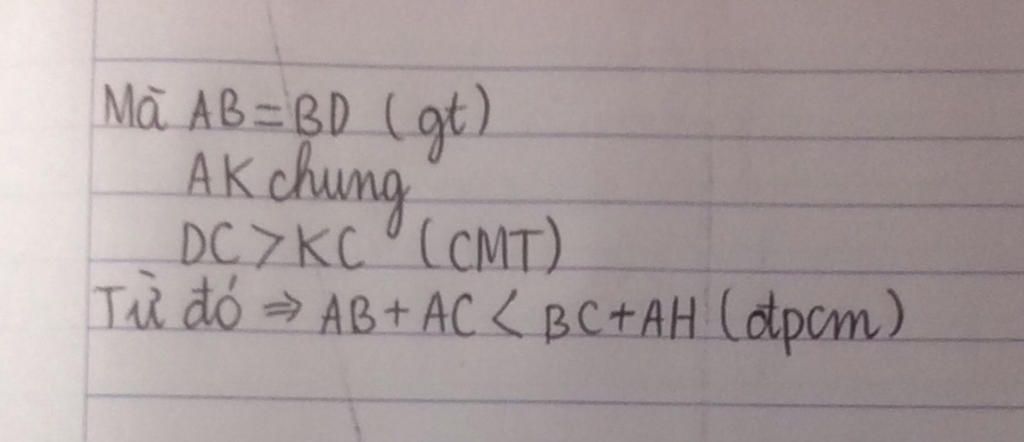 Mà AB = BD (gt)
AK chung
DC > KC (CMT)
Từ đó ⇒ AB + AC < BC + AH (đpcm)